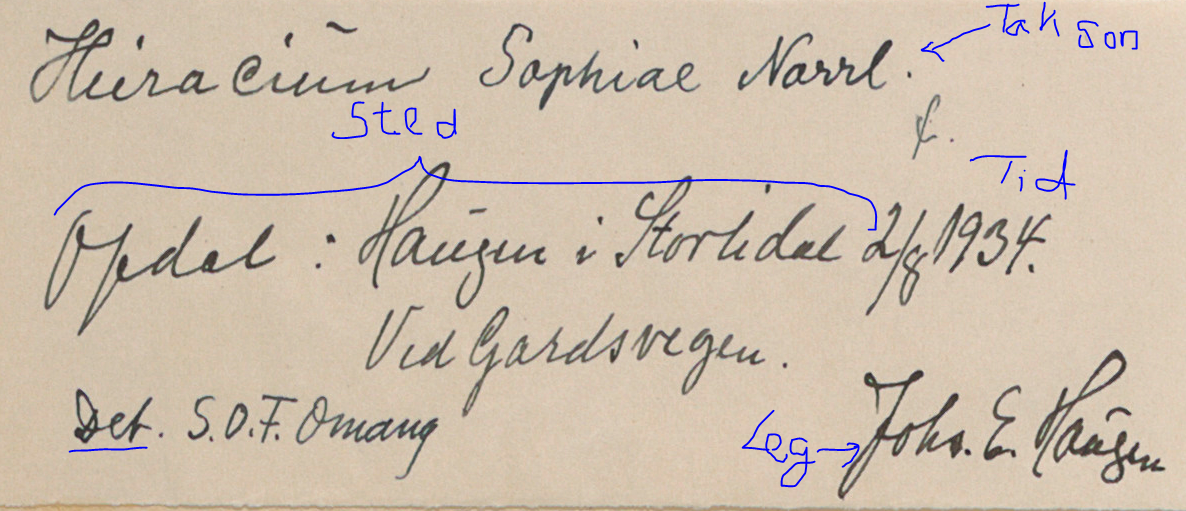 Hieracium Sophiae Norrl. ← Takson
Sted
f.
Tid
Opdal : Haugen i Storlidal 2/8 1934.
Ved Gardsvegen.
Det. S.O.F. Omang
Leg → Johs. E. Haugen